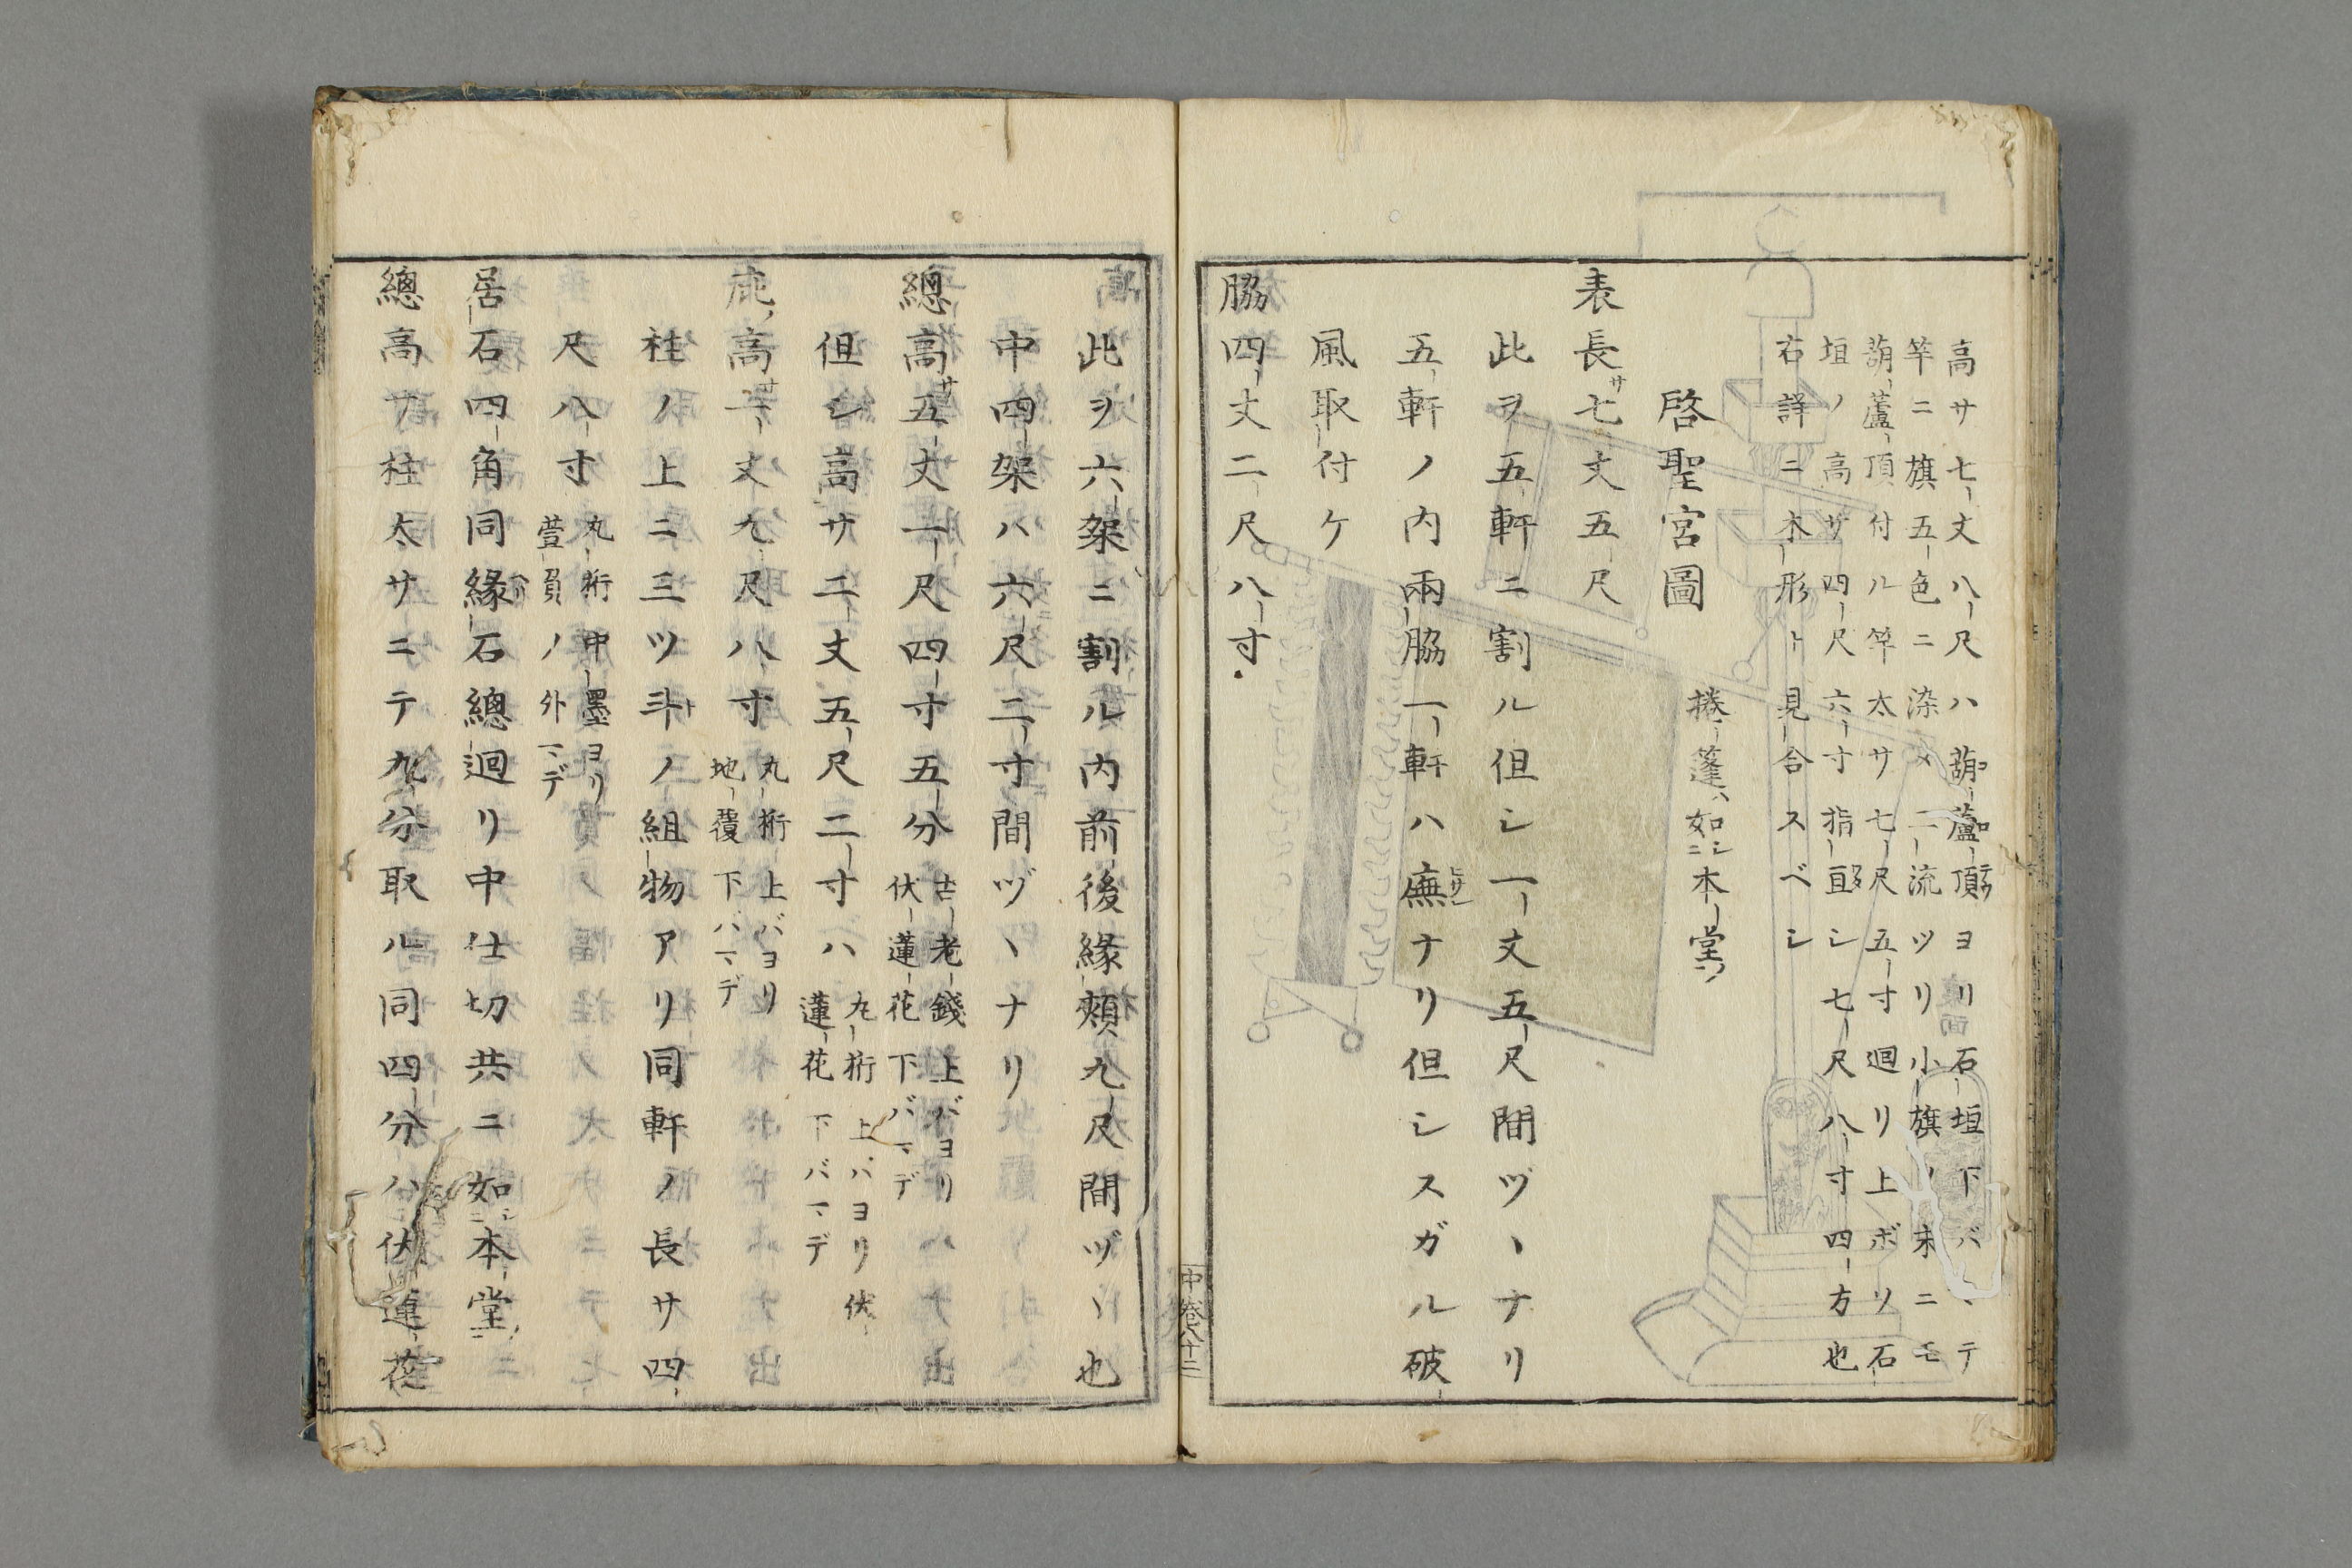 高サ七丈八尺ハ葫蘆頂ヨリ石垣下バヽテ
竿ニ旗五色ニ染メ二流ツリ小旗ノ末ニモ
葫蘆頂付ル竿太サ七尺五寸迴リ上ボリ石
垣ノ高サ四尺六寸指直シ七尺八寸四方也
右詳ニ木形ト見合スベシ
啓聖宮圖 捲篷如本堂
表長サ七丈五尺
此ヲ五軒ニ割ル但シ一丈五尺間ヅヽナリ
五軒ノ内兩脇一軒ハ廡ナリ但シスガル破
風取付ケ
脇四丈二尺八寸
中卷 八十二
此ヲ六架ニ割ル内前後緣頰九尺間ヅヽ也
中四架ハ六尺二寸間ヅヽナリ
總高サ五丈一尺四寸五分 古老錢上バヨリ
伏蓮花下バマデ
但シ高サ二丈五尺二寸ハ 丸桁上バヨリ伏
蓮花下バマデ
庇高サ一丈九尺八寸 丸桁上バヨリ
地覆下バマデ
柱ノ上ニ三ツ斗ノ組物アリ同軒ノ長サ四
尺八寸 丸桁中墨ヨリ
萱負ノ外マデ
居石四角同緣石總迴リ中仕切共ニ如本堂
總高サ柱太サニテ九分取ル同四分ハ伏蓮花